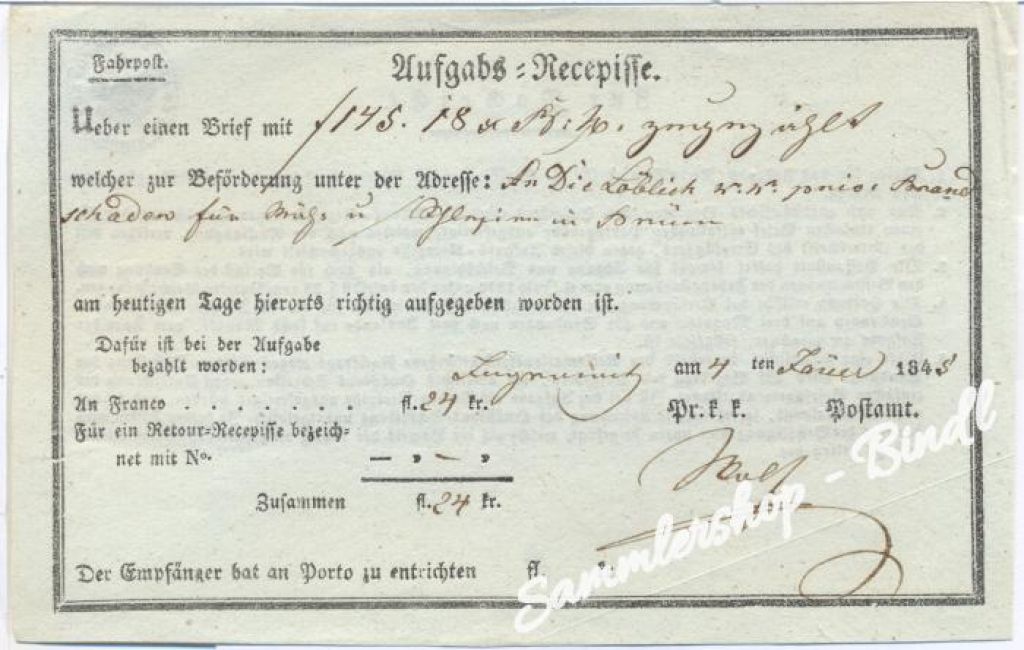 Fahrpost.
Aufgabs-Recepisse.
Ueber einen Brief mit f 145. 18 x
welcher zur Beförderung unter der Adresse: An Die Löblich k. k. Brand
schaden für Mähr u Schlesien in Brünn
am heutigen Tage hierorts richtig aufgegeben worden ist.
Dafür ist bei der Aufgabe
bezahlt worden:
am 4 ten 1848
An Franco . . . . . . . fl. 24 kr.
Pr. k. k. Postamt.
Für ein Retour-Recepisse bezeich-
net mit No. — „ — „
Zusammen fl. 24 kr.
Der Empfänger hat an Porto zu entrichten fl. kr.
Sammlershop - Bindl